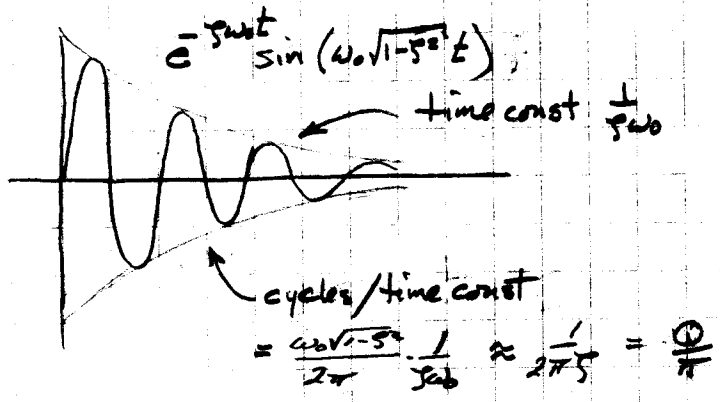 e^{-ζω₀t} sin (ω₀√(1-ζ²) t),
time const 1/ζω₀
cycles/time const
= ω₀√(1-ζ²)/2π · 1/ζω₀ ≈ 1/2πζ = Q/π